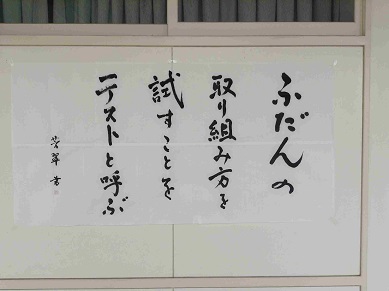 ふだんの
取り組み方を
試すことを
テストと呼ぶ